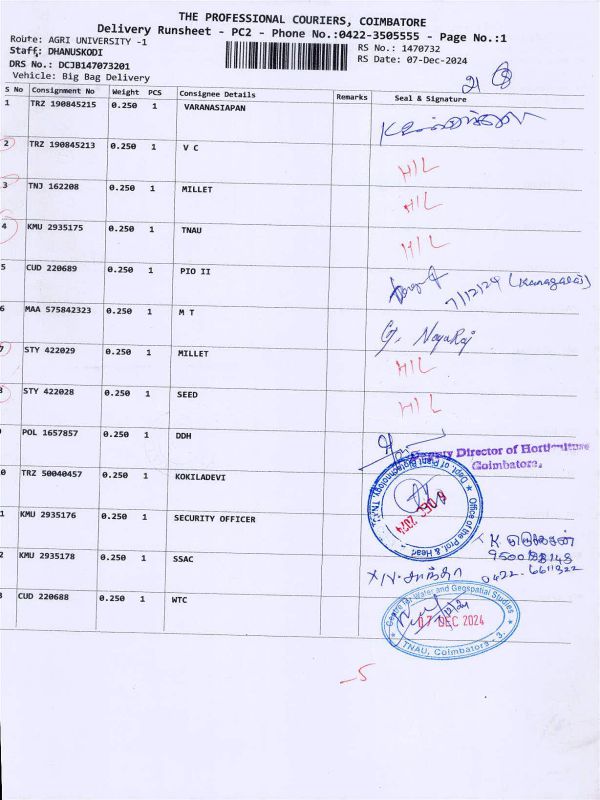 THE PROFESSIONAL COURIERS, COIMBATORE
Delivery Runsheet - PC2 - Phone No.:0422-3505555 - Page No.:1
Route: AGRI UNIVERSITY -1
RS No.: 1470732
Staff: DHANUSKODI
RS Date: 07-Dec-2024
DRS No.: DCJB147073201
Vehicle: Big Bag Delivery
S No Consignment No Weight PCS Consignee Details Remarks Seal & Signature
1 TRZ 190845215 0.250 1 VARANASIAPAN
2 TRZ 190845213 0.250 1 V C H/L
3 TNJ 162208 0.250 1 MILLET H/L
4 KMU 2935175 0.250 1 TNAU H/L
5 CUD 220689 0.250 1 PIO II 7/12/24 (Kanagaraj)
6 MAA 575842323 0.250 1 M T
7 STY 422029 0.250 1 MILLET H/L
STY 422028 0.250 1 SEED H/L
POL 1657857 0.250 1 DDH
Deputy Director of Horticulture
Coimbatore.
0 TRZ 50040457 0.250 1 KOKILADEVI
Office of the Prof. & Head
Dept. of Plant Biotechnology, TNAU
DEC 2024
1 KMU 2935176 0.250 1 SECURITY OFFICER
2 KMU 2935178 0.250 1 SSAC
X N. சாந்தா
0422-6611322
CUD 220688 0.250 1 WTC
Centre for Water and Geospatial Studies
07 DEC 2024
TNAU, Coimbatore - 3.
-5